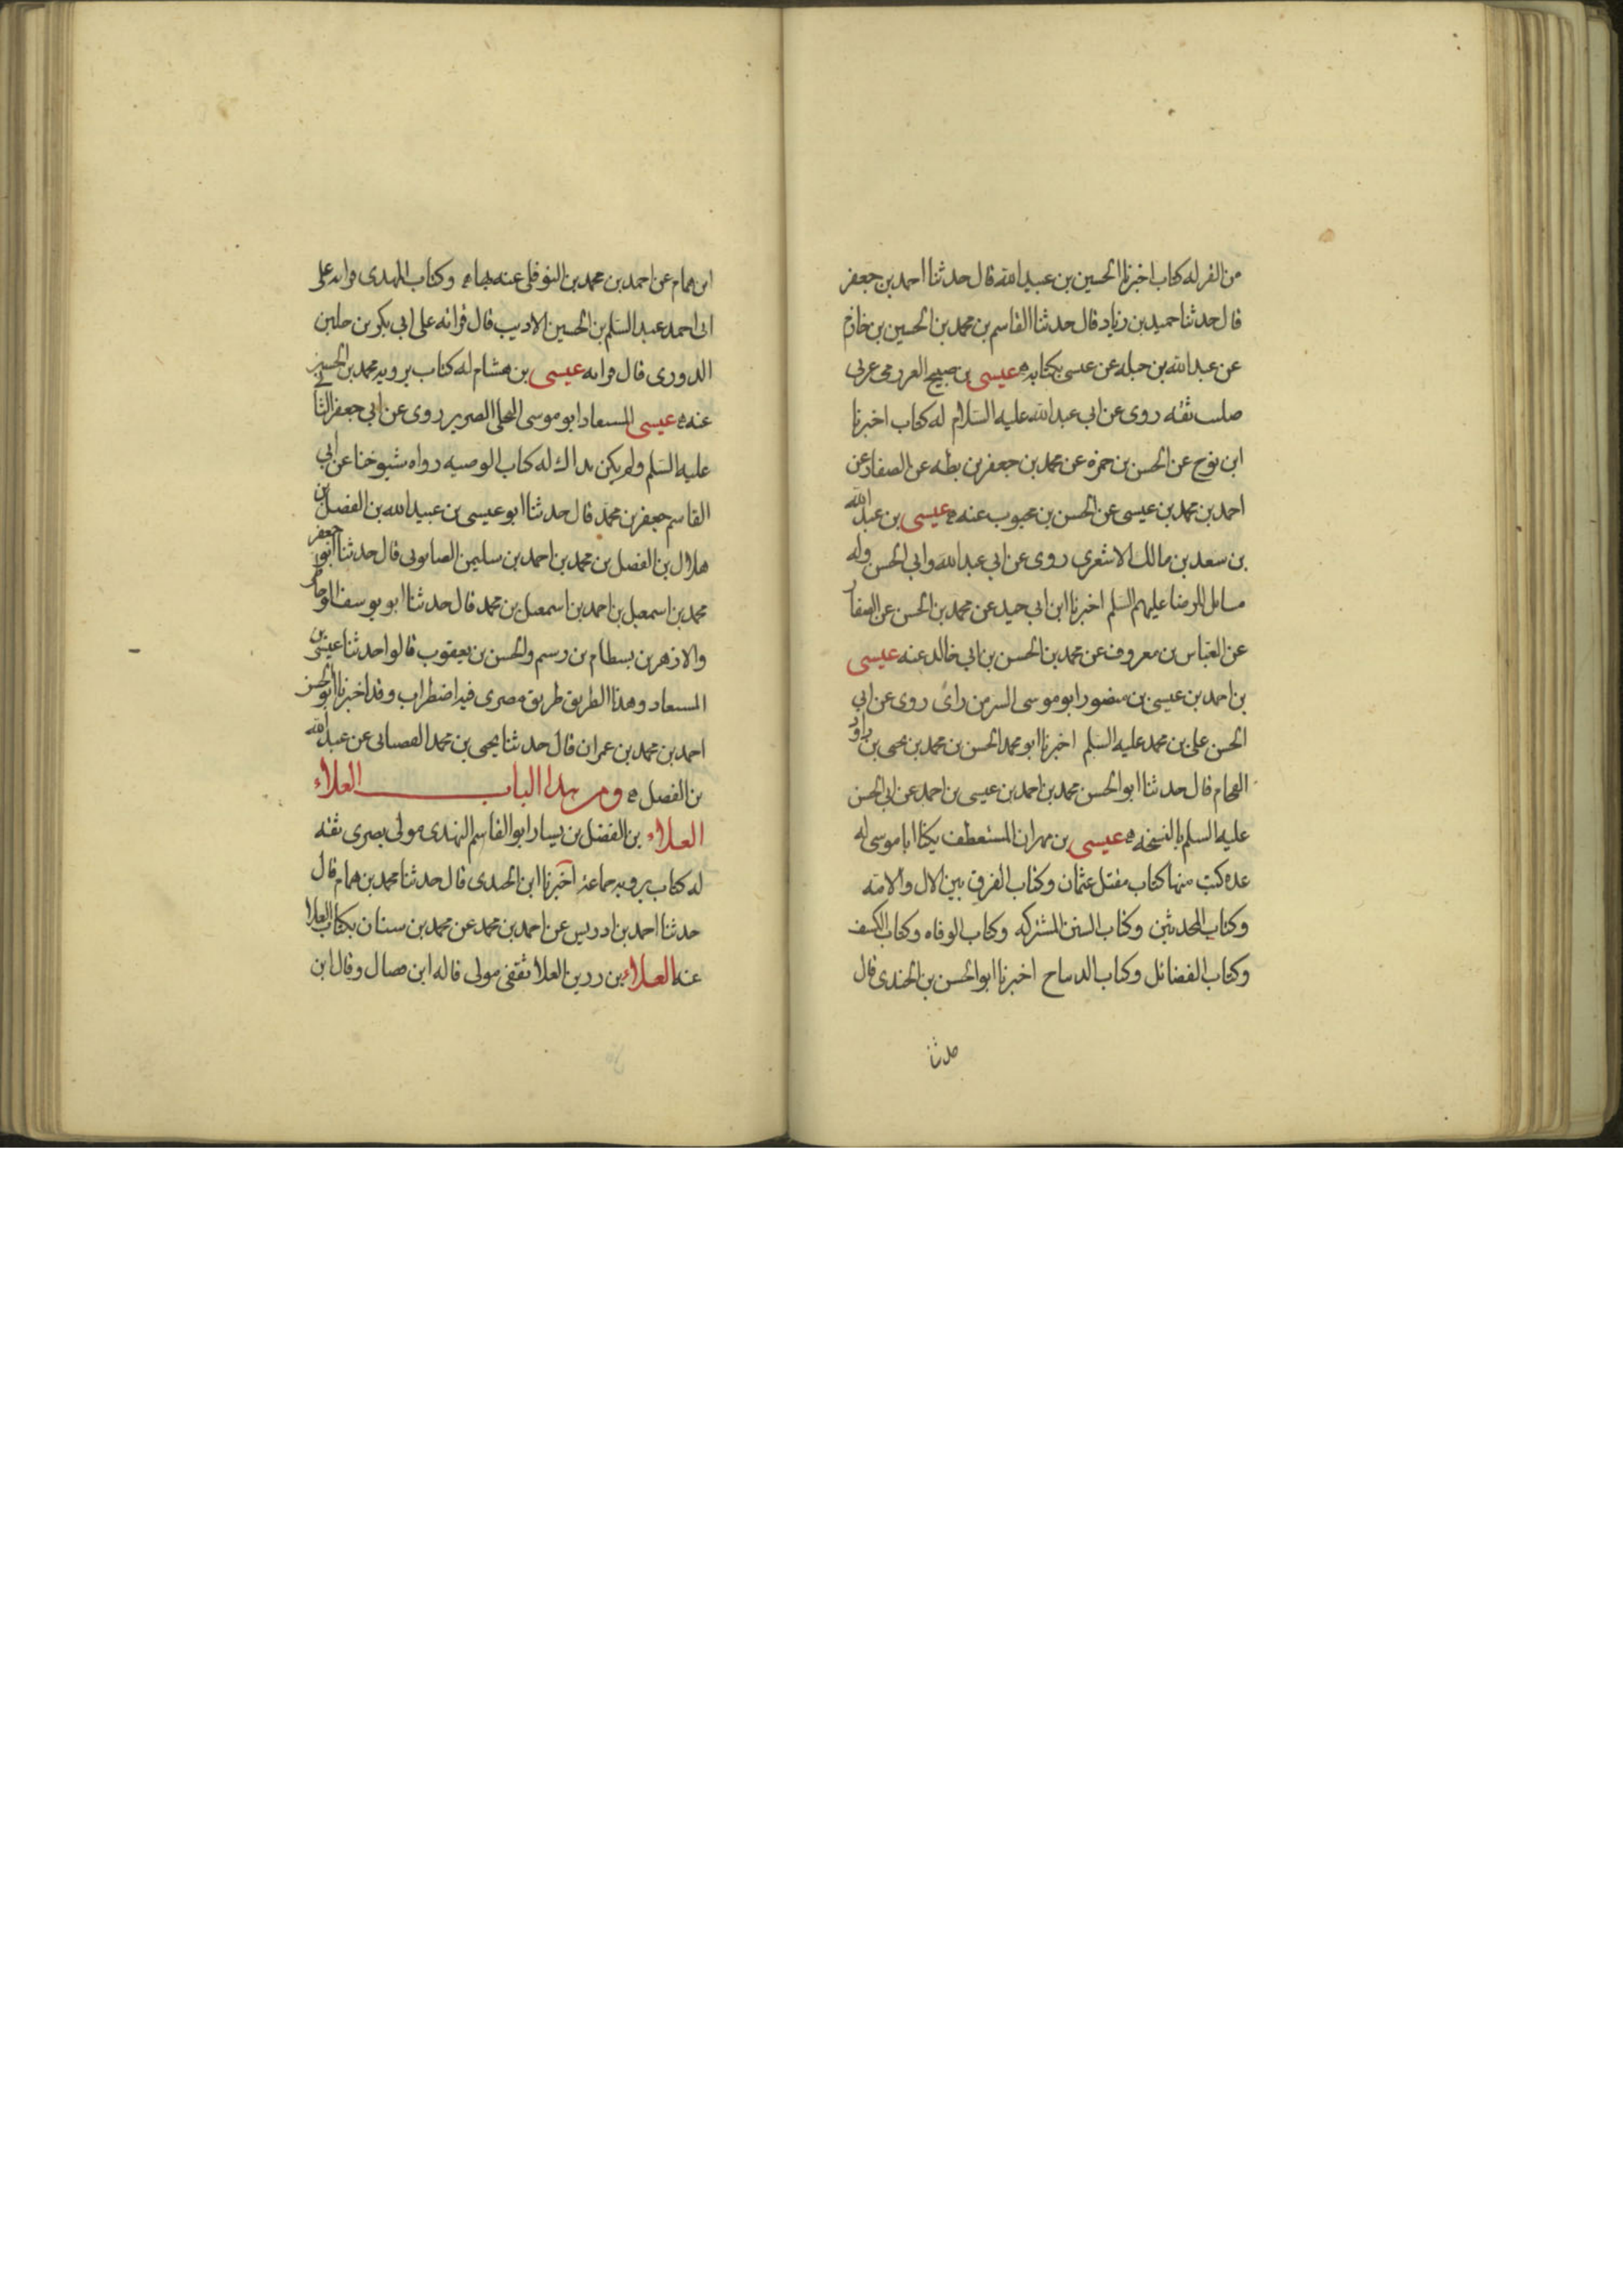 من الفر له كتاب اخبرنا الحسين بن عبيد الله قال حدثنا احمد بن جعفر
قال حدثنا حميد بن زياد قال حدثنا القاسم بن محمد بن الحسين بن خازم
عن عبد الله بن جبله عن عيسى بكتابه عيسى بن صبيح العرزمى عربى
صلب ثقه روى عن ابى عبد الله عليه السلام له كتاب اخبرنا
ابن نوح عن الحسن بن حمزه عن محمد بن جعفر بن بطه عن الصفار عن
احمد بن محمد بن عيسى عن الحسن بن محبوب عنه عيسى بن عبد الله
بن سعد بن مالك الاشعرى روى عن ابى عبد الله وابى الحسن وله
مسائل للرضا عليهم السلم اخبرنا ابن ابى جيد عن محمد بن الحسن عن الصفار
عن العباس بن معروف عن محمد بن الحسن بن ابى خالد عنه عيسى
بن احمد بن عيسى بن منصور ابو موسى السر من راى روى عن ابى
الحسن على بن محمد عليه السلم اخبرنا ابو محمد الحسن بن محمد بن يحيى بن داود
الفحام قال حدثنا ابو الحسن محمد بن احمد بن عيسى بن احمد عن ابى الحسن
عليه السلم بالنسخه عيسى بن مهران المستعطف يكنا ابا موسى له
عده كتب منها كتاب مقتل عثمان وكتاب الفرق بين الال والامه
وكتاب المحدثين وكتاب السنن المشتركه وكتاب الوفاه وكتاب الكشف
وكتاب الفضائل وكتاب الديباج اخبرنا ابو الحسن بن الجندى قال
حدثنا
ابن همام عن احمد بن محمد بن النوفلى عنه بها وكتاب المهدى قراته على
ابى احمد عبد السلم بن الحسين الاديب قال قراته على ابى بكر بن جلين
الدورى قال قراته عيسى بن هشام له كتاب يرويه محمد بن الحسين
عنه عيسى المستفاد ابو موسى البجلى الضرير روى عن ابى جعفر الثانى
عليه السلم ولم يكن بذاك له كتاب الوصيه رواه شيوخنا عن ابى
القاسم جعفر بن محمد قال حدثنا ابو عيسى بن عبيد الله بن الفضل بن
هلال بن الفضل بن محمد بن احمد بن سليمن الصابونى قال حدثنا ابو جعفر
محمد بن اسمعيل بن احمد بن اسمعيل بن محمد قال حدثنا ابو يوسف الوحاظى
والازهر بن بسطام بن رستم والحسن بن يعقوب قالوا حدثنا عيسى بن
المستفاد وهذا الطريق طريق مصرى فيه اضطراب وقد اخبرنا ابو الحسن
احمد بن محمد بن عمران قال حدثنا يحيى بن محمد القصبانى عن عبيد الله
بن الفضل ومن هذا الباب العلاء
العلاء بن الفضل بن يسار ابو القاسم النهدى مولى بصرى ثقه
له كتاب يرويه جماعة اخبرنا ابن الجندى قال حدثنا محمد بن همام قال
حدثنا احمد بن ادريس عن احمد بن محمد عن محمد بن سنان بكتاب العلا
عنه العلاء بن رزين القلا ثقفى مولى قاله ابن فضال وقال ابن